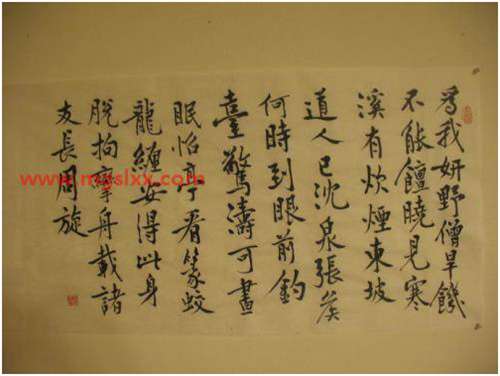 為我妍野僧旱饑
不能饘曉見寒
溪有炊煙東坡
道人已沈泉張侯
何時到眼前釣
臺驚濤可晝
眠怡亭看篆蛟
龍纏安得此身
脫拘攣舟載諸
友長周旋
www.mgslxx.com